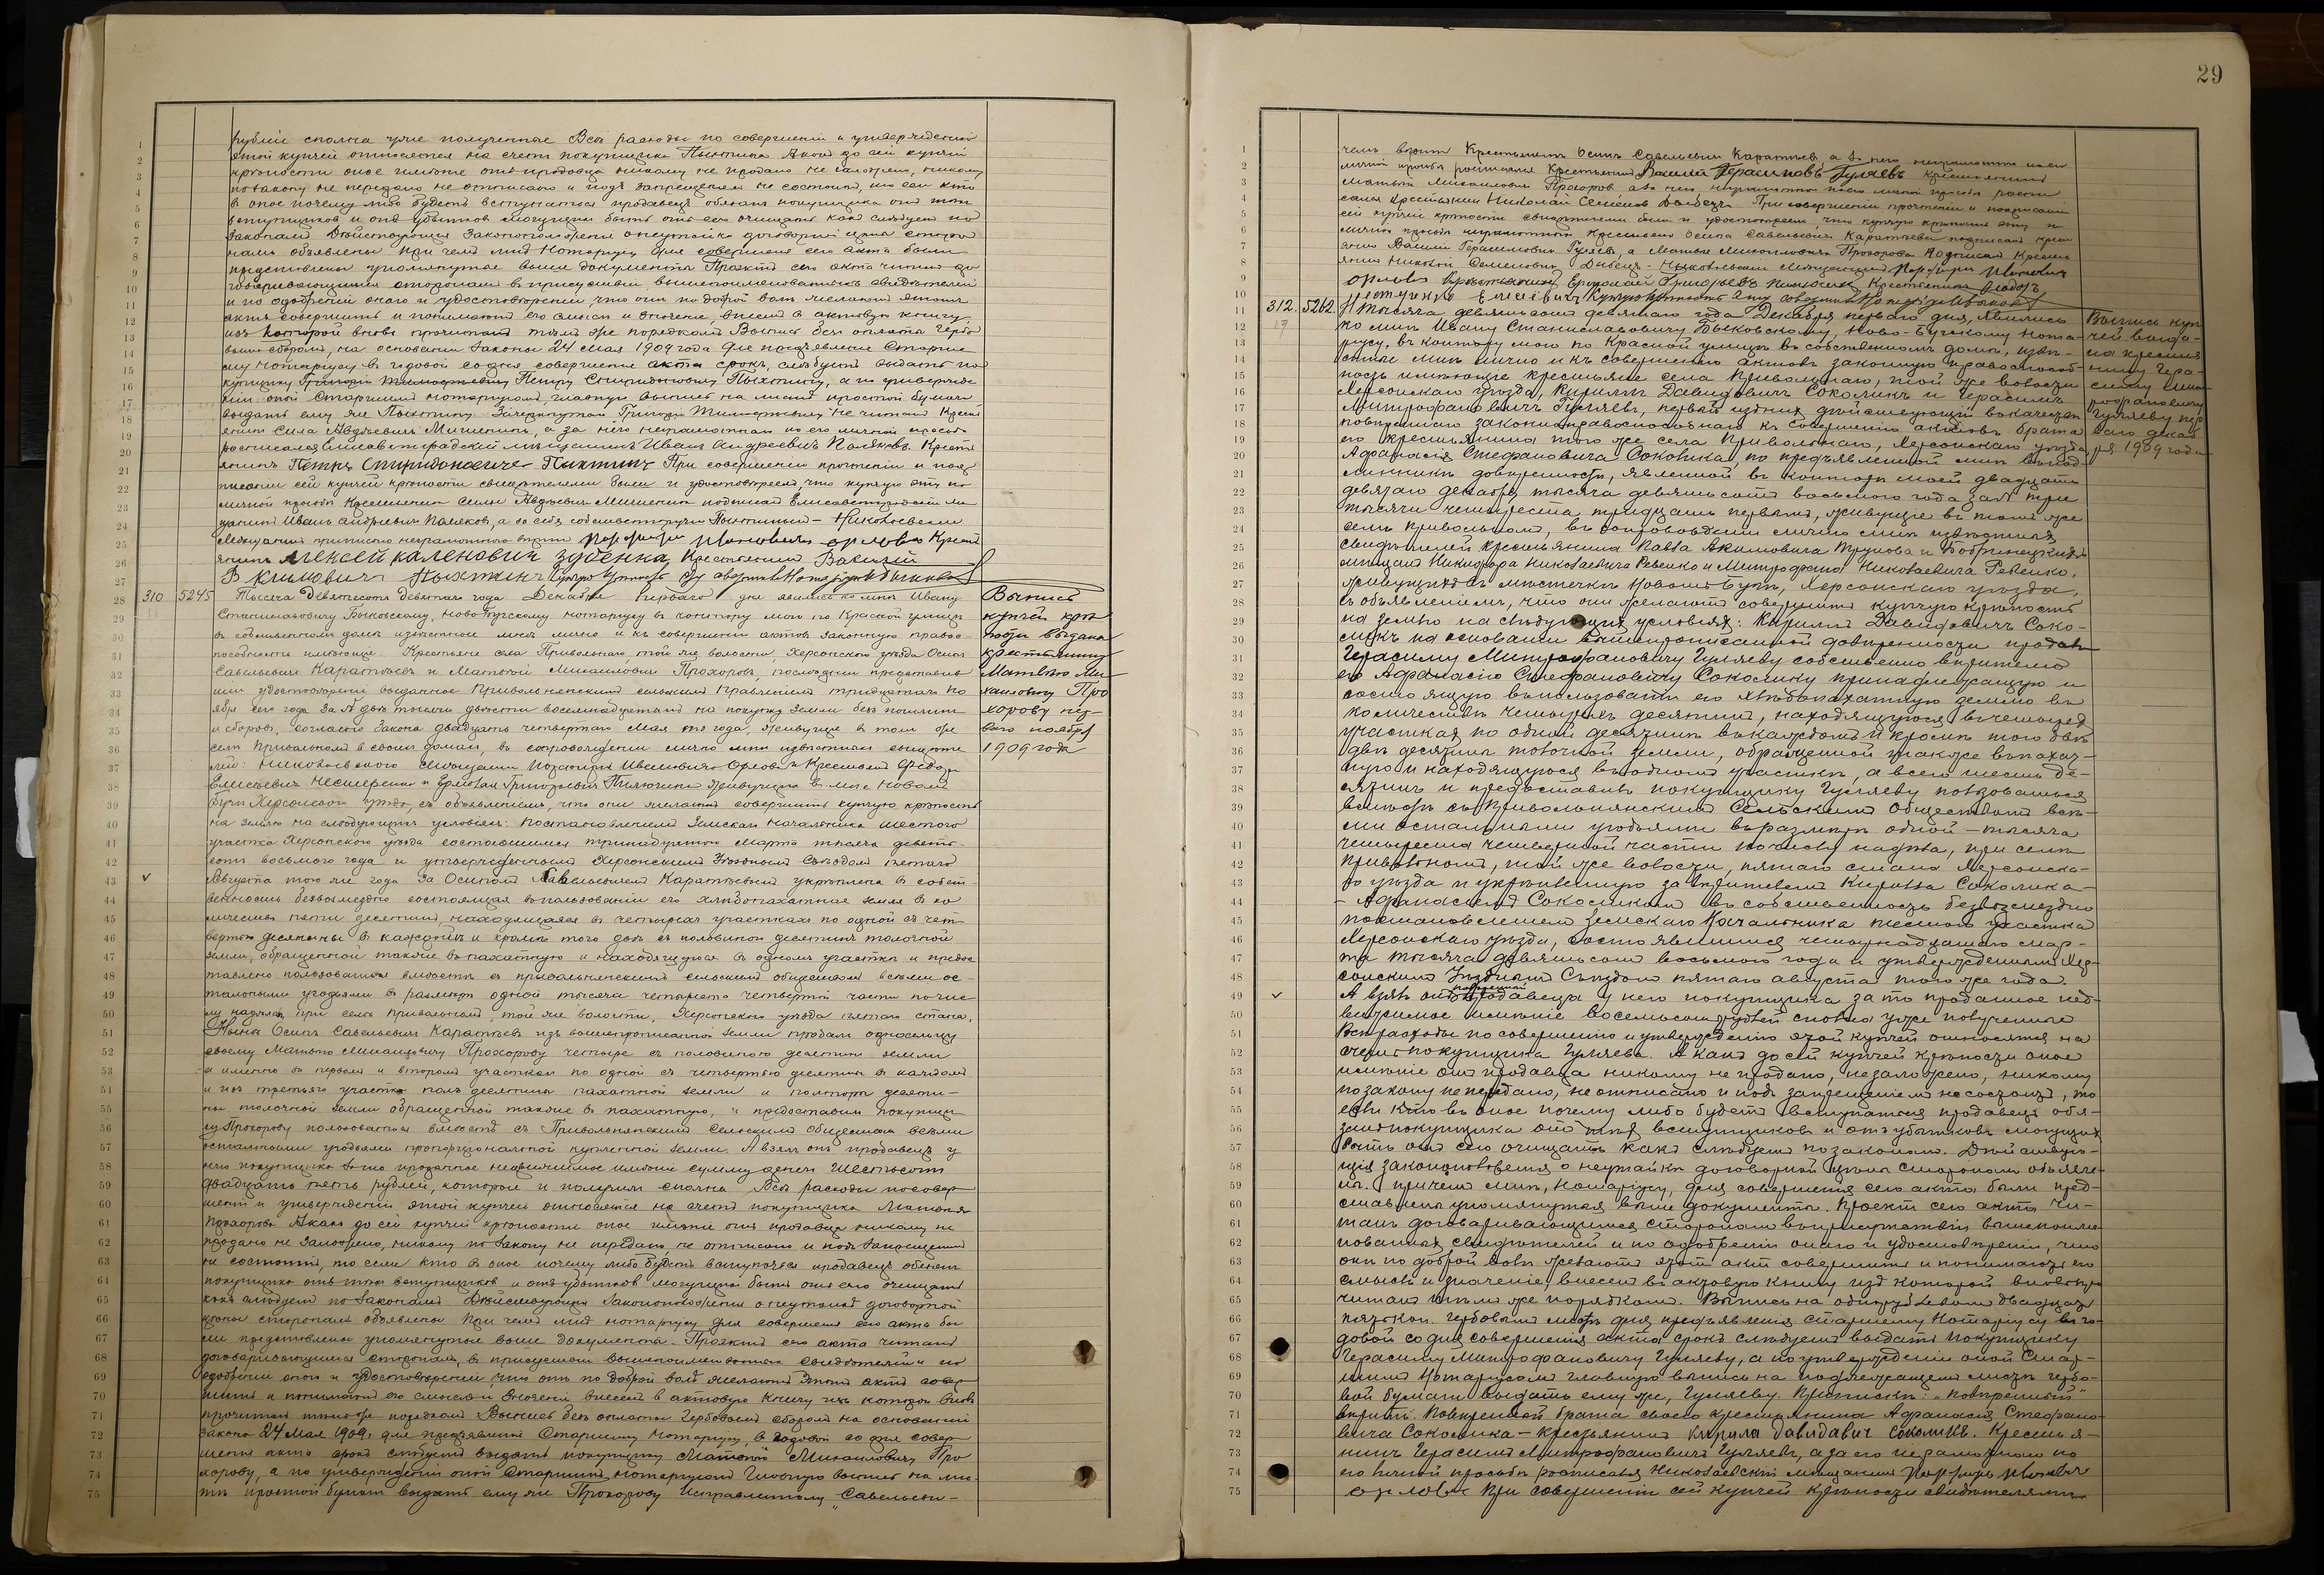 29
рублей сполна уже полученные Все расходы по совершению и утверждению
этой купчей относятся на счетъ покупщика Пыхтина А какъ до сей купчей
крепости оное имение отъ продавца никому не продано не заложено, никому
по закону не передано не отписано и подъ запрещениемъ не состоитъ, то если кто
в оное почему либо будетъ вступаться продавецъ обязанъ покупщика отъ техъ
вступщиковъ и отъ убытковъ могущихъ быть отъ сего очищать какъ следуетъ по
законамъ Действующия законоположения о неутайке договорной цены сторо
намъ объявлены При чемъ мне Нотариусу для совершения сего акта были
представлены упомянутые выше документы Проектъ сего акта читанъ до
говаривающимся сторонамъ в присутствии вышепоименованныхъ свидетелей
и по одобрении онаго и удостоверении что они по доброй воле желаютъ этотъ
актъ совершить и понимаютъ его смыслъ и значение внесенъ в актовую книгу
изъ которой вновь прочитанъ темъ же порядкомъ Выпись безъ оплаты гербо
вымъ сборомъ, на основании Закона 24 мая 1909 года для предъявления Старше
му Нотариусу в годовой со дня совершения акта срокъ, следуетъ выдать по
купщику Григорию Тимофеевичу Петру Спиридоновичу Пыхтину, а по утвержде
нии оной Старшимъ Нотариусомъ главную выпись на листе простой бумаги
выдать ему же Пыхтину Зачеркнутое Григорию Тимофеевичу не читать Кресть
янинъ Сила Авдеевичъ Мишенинъ, а за него неграмотнаго по его личной просьбе
росписался Елисаветградский мещанинъ Иванъ Андреевичъ Поляковъ. Кресть
янинъ Петръ Спиридоновичъ Пыхтинъ При совершении прочтении и под
писании сей купчей крепости свидетелями были и удостоверяемъ, что купчую эту по
личной просьбе Крестьянина Силы Авдеевича Мишенина подписалъ Елисаветградский ме
щанинъ Иванъ Андреевичъ Поляковъ, а за себя собственноручно Пыхтинъ - Николаевский
Порфирий Ивановичъ Орловъ Крест
янинъ Алексей Каленовичъ Зубенка, Крестьянинъ Василий
Пыхтинъ Купчую крепость эту совершилъ Нотариусъ Быковский
310 5245 Тысяча девятьсотъ девятаго года Декабря перваго дня явились ко мне Ивану
Выпись
Станиславовичу Быковскому, Ново Бугскому нотариусу в контору мою по Красной улице
купчей кре
в собственномъ доме известные мне лично и къ совершению актовъ законную право
пости выдана
способность имеющие Крестьяне села Привольнаго, той же волости, Херсонскаго уезда Осипъ
крестьянину
Савельевичъ Каратеевъ и Матвей Михаиловичъ Прохоровъ, последний представилъ
Матвею Ми
мне удостоверение выданное Привольнянскимъ сельскимъ Правлениемъ тридцатаго но
хаиловичу Про
ября сего года за № две тысячи двести восемнадцатымъ на покупку земли безъ пошлинъ
хорову пер
и сборовъ, согласно Закона двадцать четвертаго Мая сего года, живущие в томъ же
ваго ноября
селе Привольномъ в своихъ домахъ, в сопровождении лично мне известныхъ свидете
1909 года
лей: Николаевскаго мещанина Порфирия Ивановича Орлова и Крестьянъ Федора
Елисеевича Нестеренко и Ермолая Григорьевича живущихъ в м-ке Новомъ
Буге Херсонскаго уезда, съ объявлениемъ, что они желаютъ совершить купчую крепость
на землю на следующихъ условияхъ: постановлениемъ Земскаго Начальника шестого
участка Херсонскаго уезда состоявшимся тринадцатаго Марта тысяча девять-
сотъ восьмого года и утвержденнымъ Херсонскимъ Уезднымъ Съездомъ пятаго
Августа того же года за Осипомъ Савельевичемъ Каратеевымъ укреплена в собст
венность безвозмездно состоящая в пользовании его хлебопахатная земля в ко
личестве пяти десятинъ, находящаяся в четырехъ участкахъ по одной съ чет
вертью десятины в каждомъ и кроме того две съ половиною десятины толочной
земли, обращенной также в пахатную и находящуюся в одномъ участке и предос
тавлено пользоваться вместе съ Привольнянскимъ сельскимъ обществомъ всеми ос
тальными угодьями в размере одной тысяча четыреста четвертой части по чис
лу наделовъ при селе Привольномъ, той же волости, Херсонскаго уезда пятаго стана.
Ныне Осипъ Савельевичъ Каратеевъ изъ вышепрописанной земли продалъ односельцу
своему Матвею Михаиловичу Прохорову четыре съ половиною десятины земли
а именно в первомъ и второмъ участкахъ по одной съ четвертью десятине в каждомъ
и изъ третьяго участка полъ десятины пахатной земли и полторы десяти-
ны толочной земли обращенной также в пахатную, и предоставилъ покупщи
ку Прохорову пользоваться вместе съ Привольнянскимъ Сельскимъ Обществомъ всеми
остальными угодьями пропорционально купленной земли. А взялъ онъ продавецъ у
него покупщика за то проданное недвижимое имение сумму денегъ шестьсотъ
двадцать пять рублей, которые и получилъ сполна Все расходы по совер
шению и утверждению этой купчей относятся на счетъ покупщика Матвея
Прохорова А какъ до сей купчей крепости оное имение отъ продавца никому не
продано не заложено, никому по закону не передано, не отписано и подъ запрещениемъ
не состоитъ, то если кто в оное почему либо будетъ вступаться продавецъ обязанъ
покупщика отъ техъ вступщиковъ и отъ убытковъ могущихъ быть отъ сего очищать
какъ следуетъ по законамъ Действующия законоположения о неутайке договорной
цены сторонамъ объявлены При чемъ мне нотариусу для совершения сего акта бы
ли представлены упомянутые выше документы. Проектъ сего акта читанъ
договаривающимся сторонамъ, в присутствии вышепоименованныхъ свидетелей и по
одобрении онаго и удостоверении, что они по доброй воле желаютъ этотъ актъ совер
шить и понимаютъ его смыслъ и значение внесенъ в актовую книгу изъ которой вновь
прочитанъ темъ же порядкомъ Выпись безъ оплаты гербовымъ сборомъ на основании
закона 24 Мая 1909 г. для предъявления Старшему Нотариусу, в годовой со дня совер
шения акта срокъ следуетъ выдать покупщику Матвею Михаиловичу Про
хорову, а по утверждении оной Старшимъ нотариусомъ Главную выпись на лис
те простой бумаги выдать ему же Прохорову Исправленному „Савельеви-
чемъ верить Крестьянинъ Осипъ Савельевичъ Каратеевъ, а за него неграмотнаго по его
личной просьбе росписался Крестьянинъ Василий Герасимовъ Гуляевъ Крестьянинъ
Матвей Михаиловичъ Прохоровъ а за него неграмотнаго по его личной просьбе роспи
сался Крестьянинъ Николай Семеновъ При совершении прочтении и подписании
сей купчей крепости свидетелями были и удостоверяемъ, что купчую крепость эту по
личной просьбе неграмотнаго Крестьянина Осипа Савельевича Каратеева подписалъ крест
янинъ Василий Герасимовичъ Гуляевъ, а Матвея Михаиловича Прохорова подписалъ Крестья
янинъ Николай Семеновичъ Николаевский мещанинъ Порфирий Ивановичъ
Орловъ Крестьянинъ Ермолай Григорьевъ Крестьянинъ Федоръ
Нестеренко Елисеевичъ Купчую крепость эту совершилъ Нотариусъ Быковский
312. 5262. Тысяча девятьсотъ девятаго года Декабря перваго дня, явились
Выпись куп
17
ко мне Ивану Станиславовичу Быковскому, Ново-Бугскому Нота-
чей выда-
риусу, въ контору мою по Красной улице въ собственномъ доме, изве-
на крестья
стные мне лично и къ совершению актовъ законную правоспособ-
нину Гера-
ность имеющие крестьяне села Привольнаго, той же волости
симу Мит
Херсонскаго уезда, Кирилъ Давидовичъ Соколикъ и Герасимъ
рофановичу
Митрофановичъ Гуляевъ, первый изъ нихъ действующий въ качестве
Гуляеву пер
повереннаго законноправоспособнаго къ совершению актовъ брата
ваго декаб
его крестьянина того же села Привольнаго, Херсонскаго уезда
ря 1909 года
Афанасия Стефановича Соколика, по предъявленной мне въ под-
линнике доверенности, явленной въ конторе моей двадцать
девятаго декабря тысяча девятьсотъ восьмого года за № три
тысячи четыреста тридцать первымъ, живущие въ томъ же
селе Привольномъ, въ сопровождении лично мне известныхъ
свидетелей крестьянина Павла Акимовича Трунова и Бобринецкихъ
мещанъ Никифора Николаевича Ревенко и Митрофана Николаевича Ревенко,
живущихъ въ местечке Новомъ-Буге, Херсонскаго уезда,
съ объявлениемъ, что они желаютъ совершить купчую крепость
на землю на следующихъ условияхъ: Кирилъ Давидовичъ Соко-
ликъ на основании вышепрописанной доверенности продалъ
Герасиму Митрофановичу Гуляеву собственно верителю
его Афанасию Стефановичу Соколику принадлежащую и
состоящую въ пользовании его хлебопахатную землю въ
количестве четырехъ десятинъ, находящуюся въ четырехъ
участкахъ по одной десятине въ каждомъ и кроме того две
две десятины толочной земли, обращенной также въ пахат-
ную и находящуюся въ одномъ участке, а всего шесть де-
сятинъ и предоставилъ покупщику Гуляеву пользоваться
вместе съ Привольнянскимъ Сельскимъ Обществомъ все-
ми остальными угодьями въ размере одной - тысяча
четыреста четвертой части по числу надела, при селе
Привольномъ, той же волости, пятаго стана Херсонска-
го уезда и укрепленную за верителемъ Кирилла Соколика -
- Афанасиемъ Соколикомъ въ собственность безвозмездно
постановлениемъ Земскаго Начальника шестого участка
Херсонскаго уезда, состоявшимся четырнадцатаго мар-
та тысяча девятьсотъ восьмого года и утвержденнымъ Хер-
сонскимъ Уезднымъ Съездомъ пятаго августа того же года.
поверенный
А взялъ онъ продавецъ у него покупщика за то проданное нед-
вижимое имение восемьсотъ рублей сполна уже полученные
Все расходы по совершению и утверждению этой купчей относятся на
счетъ покупщика Гуляева. А какъ до сей купчей крепости оное
имение отъ продавца никому не продано, не заложено, никому
по закону не передано, не отписано и подъ запрещениемъ не состоитъ, то
если кто въ оное почему либо будетъ вступаться продавецъ обя-
занъ покупщика отъ техъ вступщиковъ и отъ убытковъ могущихъ
быть отъ сего очищать какъ следуетъ по законамъ. Действую-
щия законоположения о неутайке договорной цены сторонамъ объявле-
ны. Причемъ мне, Нотариусу, для совершения сего акта были пред-
ставлены упомянутые выше документы. Проектъ сего акта чи-
танъ договаривающимся сторонамъ въ присутствии вышепоиме-
нованныхъ свидетелей и по одобрении онаго и удостоверении, что
они по доброй воле желаютъ этотъ актъ совершить и понимаютъ его
смыслъ и значение, внесенъ въ актовую книгу изъ которой вновь про
читанъ темъ же порядкомъ. Выпись на
гербовымъ сборомъ для предъявления Старшему Нотариусу въ го-
довой со дня совершения акта срокъ следуетъ выдать покупщику
Герасиму Митрофановичу Гуляеву, а по утверждении оной Стар-
шимъ Нотариусомъ главную выпись на надлежащемъ листе гербо-
вой бумаги выдать ему же, Гуляеву. Приписки: „поверенный"
верить. Поверенный брата своего крестьянина Афанасия Стефано-
вича Соколика - крестьянинъ Кирила Давидавич Соколикъ. Крестья-
нинъ Герасимъ Митрофановичъ Гуляевъ, а за его неграмотнаго по
его личной просьбе росписался Николаевский мещанинъ Порфирий Ивановичъ
Орловъ При совершении сей купчей крепости свидетелями